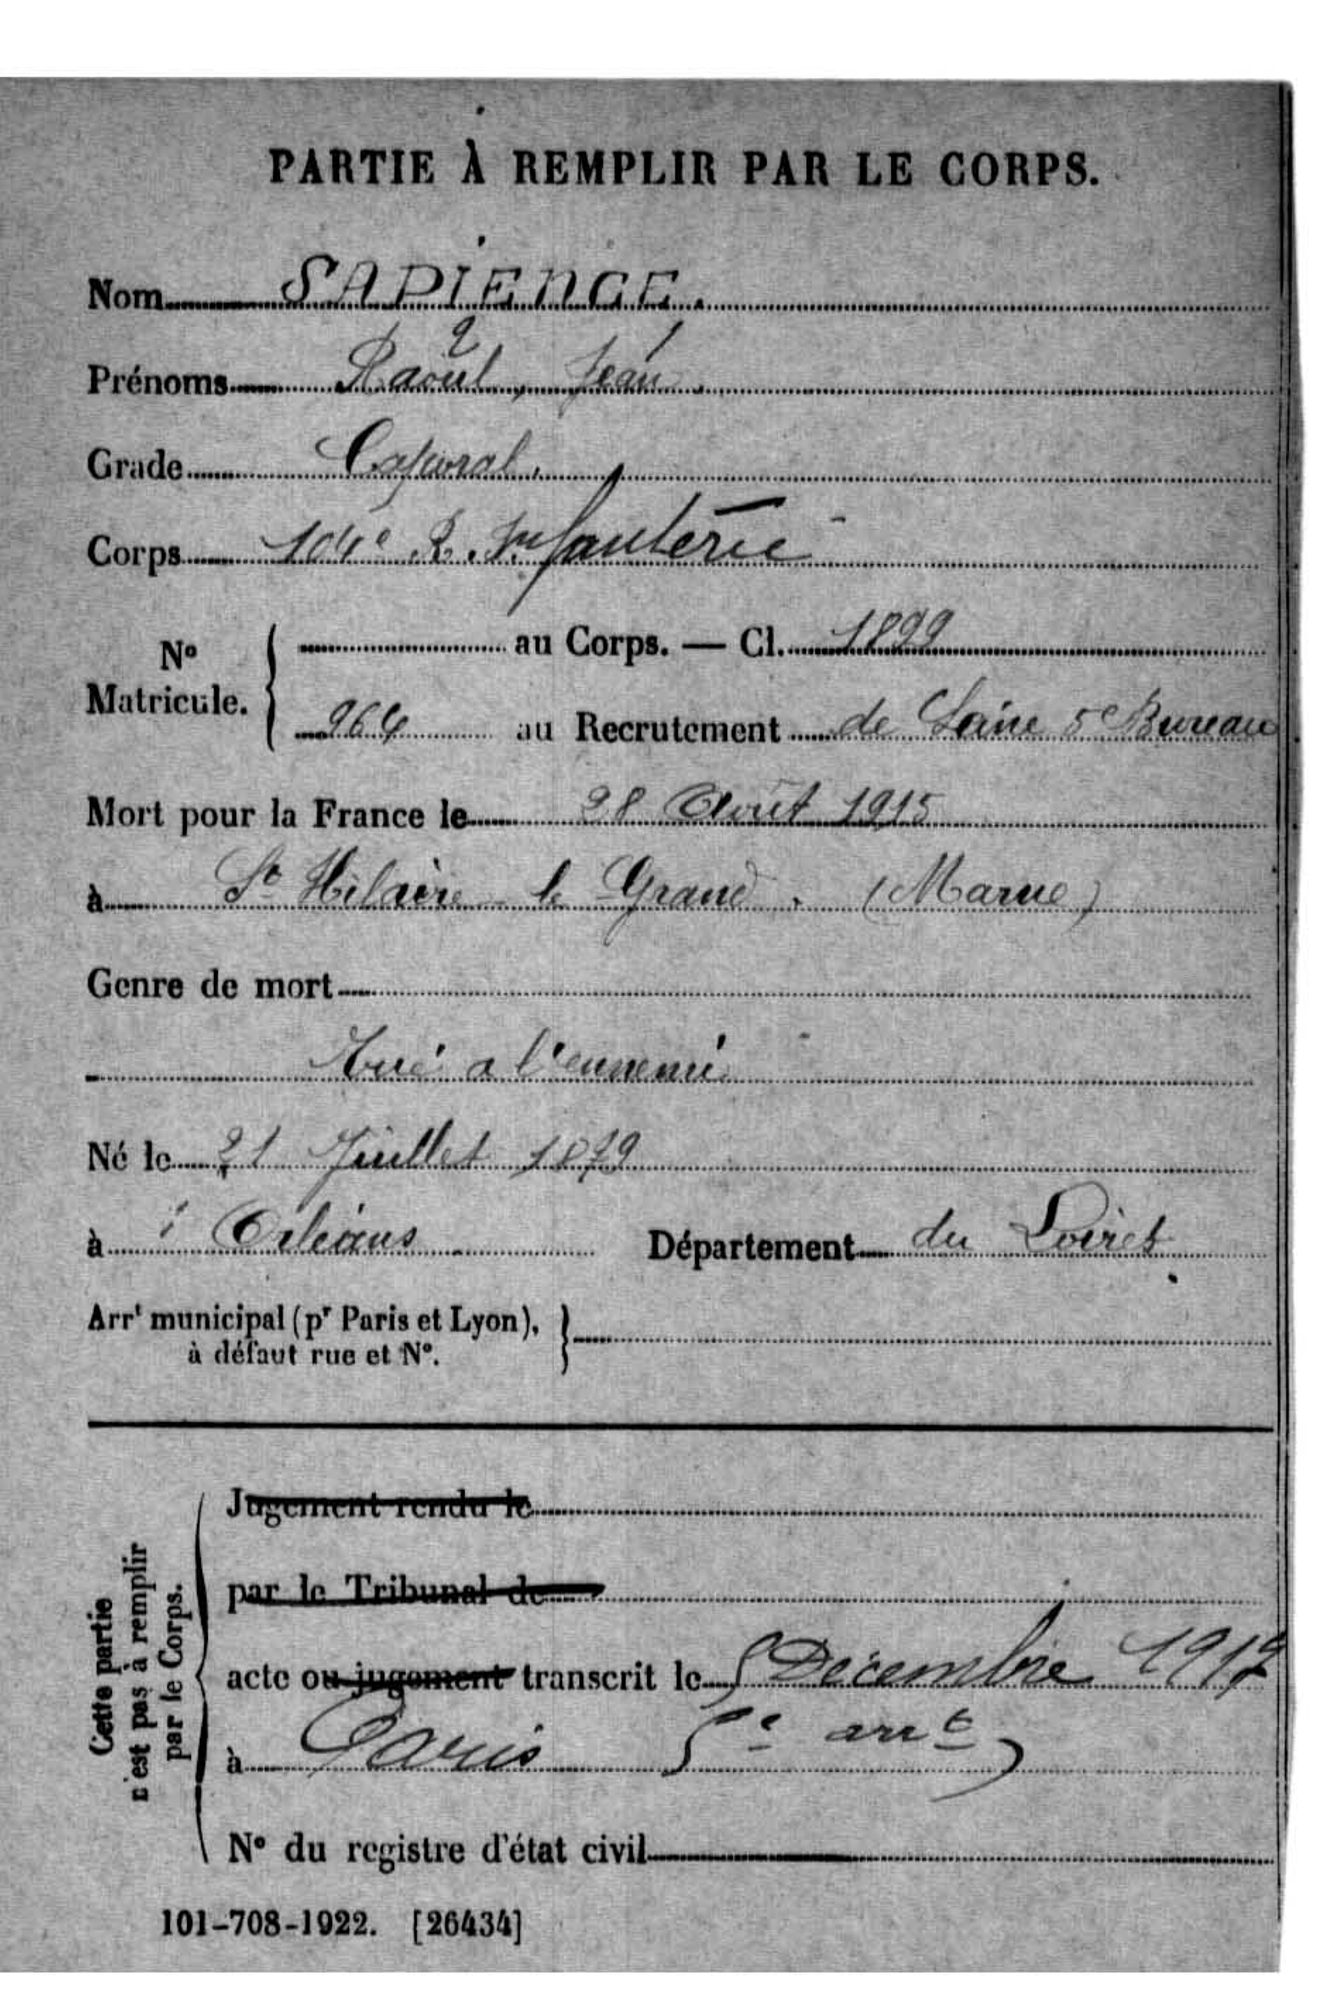 PARTIE À REMPLIR PAR LE CORPS.
Nom SAPIENCE.
Prénoms Raoül, Jean.
Grade Caporal.
Corps 104e R. Infanterie
No Matricule. { au Corps. — Cl. 1899
964 au Recrutement de Seine 5e Bureau
Mort pour la France le 28 Août 1915
à St Hilaire le Grand. (Marne)
Genre de mort
Tué a l'ennemi
Né le 21 Juillet 1879
à Orléans Département du Loiret
Arrt municipal (pr Paris et Lyon),
à défaut rue et No.
Cette partie
n'est pas à remplir
par le Corps.
Jugement rendu le
par le Tribunal de
acte ou jugement transcrit le 5 Décembre 1917
à Paris 5e arrt
No du registre d'état civil
101-708-1922. [26434]